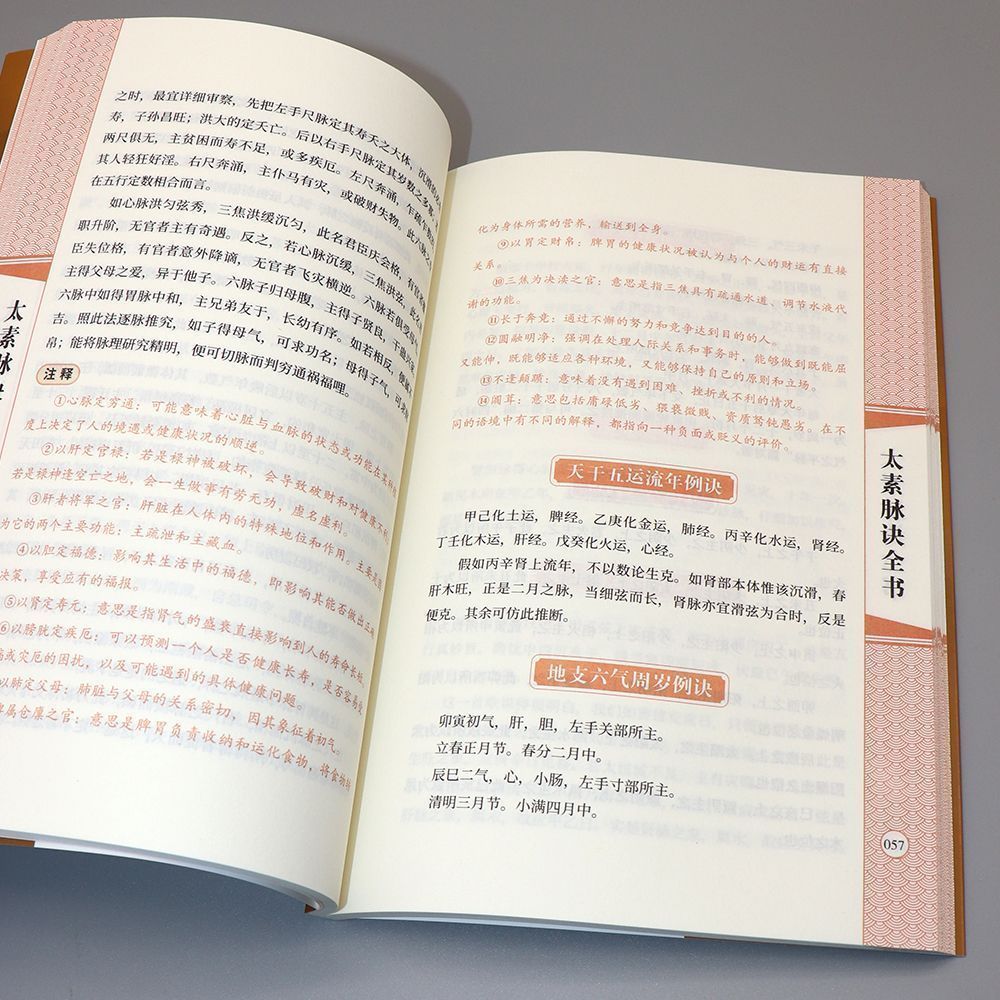 太素脉
之时，最宜详细审察，先把左手尺脉定其寿夭之大体，沉滑的
寿，子孙昌旺；洪大的定夭亡。后以右手尺脉定其岁数之多寡，
两尺俱无，主贫困而寿不足，或多疾厄。左尺奔涌，
其人轻狂好淫。右尺奔涌，主仆马有灾，或破财失物。此六脉之
在五行定数相合而言。
如心脉洪匀弦秀，三焦洪缓沉匀，此名君臣庆会格，有官者
职升阶，无官者主有奇遇。反之，若心脉沉缓，三焦洪弦，此名
臣失位格，有官者意外降谪，无官者飞灾横逆。六脉若俱受
主得父母之爱，异于他子。六脉子归母腹，主得子贤良，干蛊兴
六脉中如得胃脉中和，主兄弟友于，长幼有序。如若相反，便
吉。照此法逐脉推究，如子得母气，可求功名；母得子气，可
帛；能将脉理研究精明，便可切脉而判穷通祸福哩。
注释
①心脉定穷通：可能意味着心脏与血脉的状态或功能在某种程
度上决定了人的境遇或健康状况的顺逆。
②以肝定官禄：若是禄神被破坏，会导致破财和对健康不利
若是禄神逢空亡之地，会一生做事有劳无功，虚名虚利。
③肝者将军之官：肝脏在人体内的特殊地位和作用。主要
为它的两个主要功能：主疏泄和主藏血。
④以胆定福德：影响其生活中的福德，即影响其能否做出正确
决策，享受应有的福报。
⑤以肾定寿元：意思是指肾气的盛衰直接影响到人的寿命长短
⑥以膀胱定疾厄：可以预测一个人是否健康长寿，是否容易受
病或灾厄的困扰，以及可能遇到的具体健康问题。
以肺定父母：肺脏与父母的关系密切，因其象征着初气。
脾属仓廪之官：意思是脾胃负责收纳和运化食物，将食物转
化为身体所需的营养，输送到全身。
⑨以胃定财帛：脾胃的健康状况被认为与个人的财运有直接
关系。
⑩三焦为决渎之官：意思是指三焦具有疏通水道、调节水液代
谢的功能。
⑪长于奔竞：通过不懈的努力和竞争达到目的的人。
⑫圆融明净：强调在处理人际关系和事务时，能够做到既能屈
又能伸，既能够适应各种环境，又能够保持自己的原则和立场。
⑬不逢颠踬：意味着没有遇到困难、挫折或不利的情况。
⑭阘茸：意思包括庸碌低劣、猥亵微贱、资质驽钝愚劣。在不
同的语境中有不同的解释，都指向一种负面或贬义的评价。
天干五运流年例诀
甲己化土运，脾经。乙庚化金运，肺经。丙辛化水运，肾经。
丁壬化木运，肝经。戊癸化火运，心经。
假如丙辛肾上流年，不以数论生克。如肾部本体惟该沉滑，春
肝木旺，正是二月之脉，当细弦而长，肾脉亦宜滑弦为合时，反是
便克。其余可仿此推断。
地支六气周岁例诀
卯寅初气，肝，胆，左手关部所主。
立春正月节。春分二月中。
辰巳二气，心，小肠，左手寸部所主。
清明三月节。小满四月中。
太素脉诀全书
057